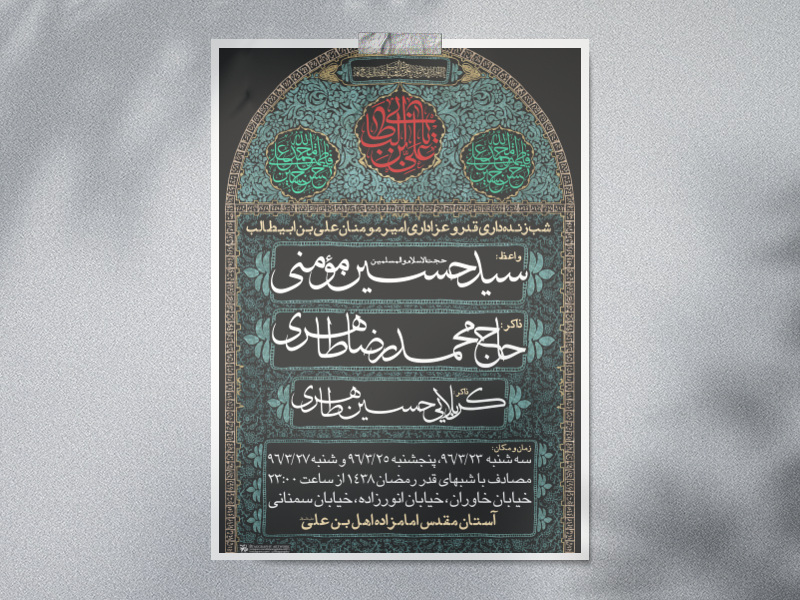 علی بن ابی طالب
شب‌زنده‌داری قدر و عزاداری امیرمومنان علی بن ابیطالب
واعظ:
حجت‌الاسلام‌والمسلمین
سیدحسین مؤمنی
ذاکر:
حاج محمدرضا طاهری
ذاکر
کربلایی حسین طاهری
زمان و مکان:
سه شنبه ۹۶/۳/۲۳، پنجشنبه ۹۶/۳/۲۵ و شنبه ۹۶/۳/۲۷
مصادف با شبهای قدر رمضان ۱۴۳۸ از ساعت ۲۳:۰۰
خیابان خاوران، خیابان انورزاده، خیابان سمنانی
آستان مقدس امامزاده اهل بن علی